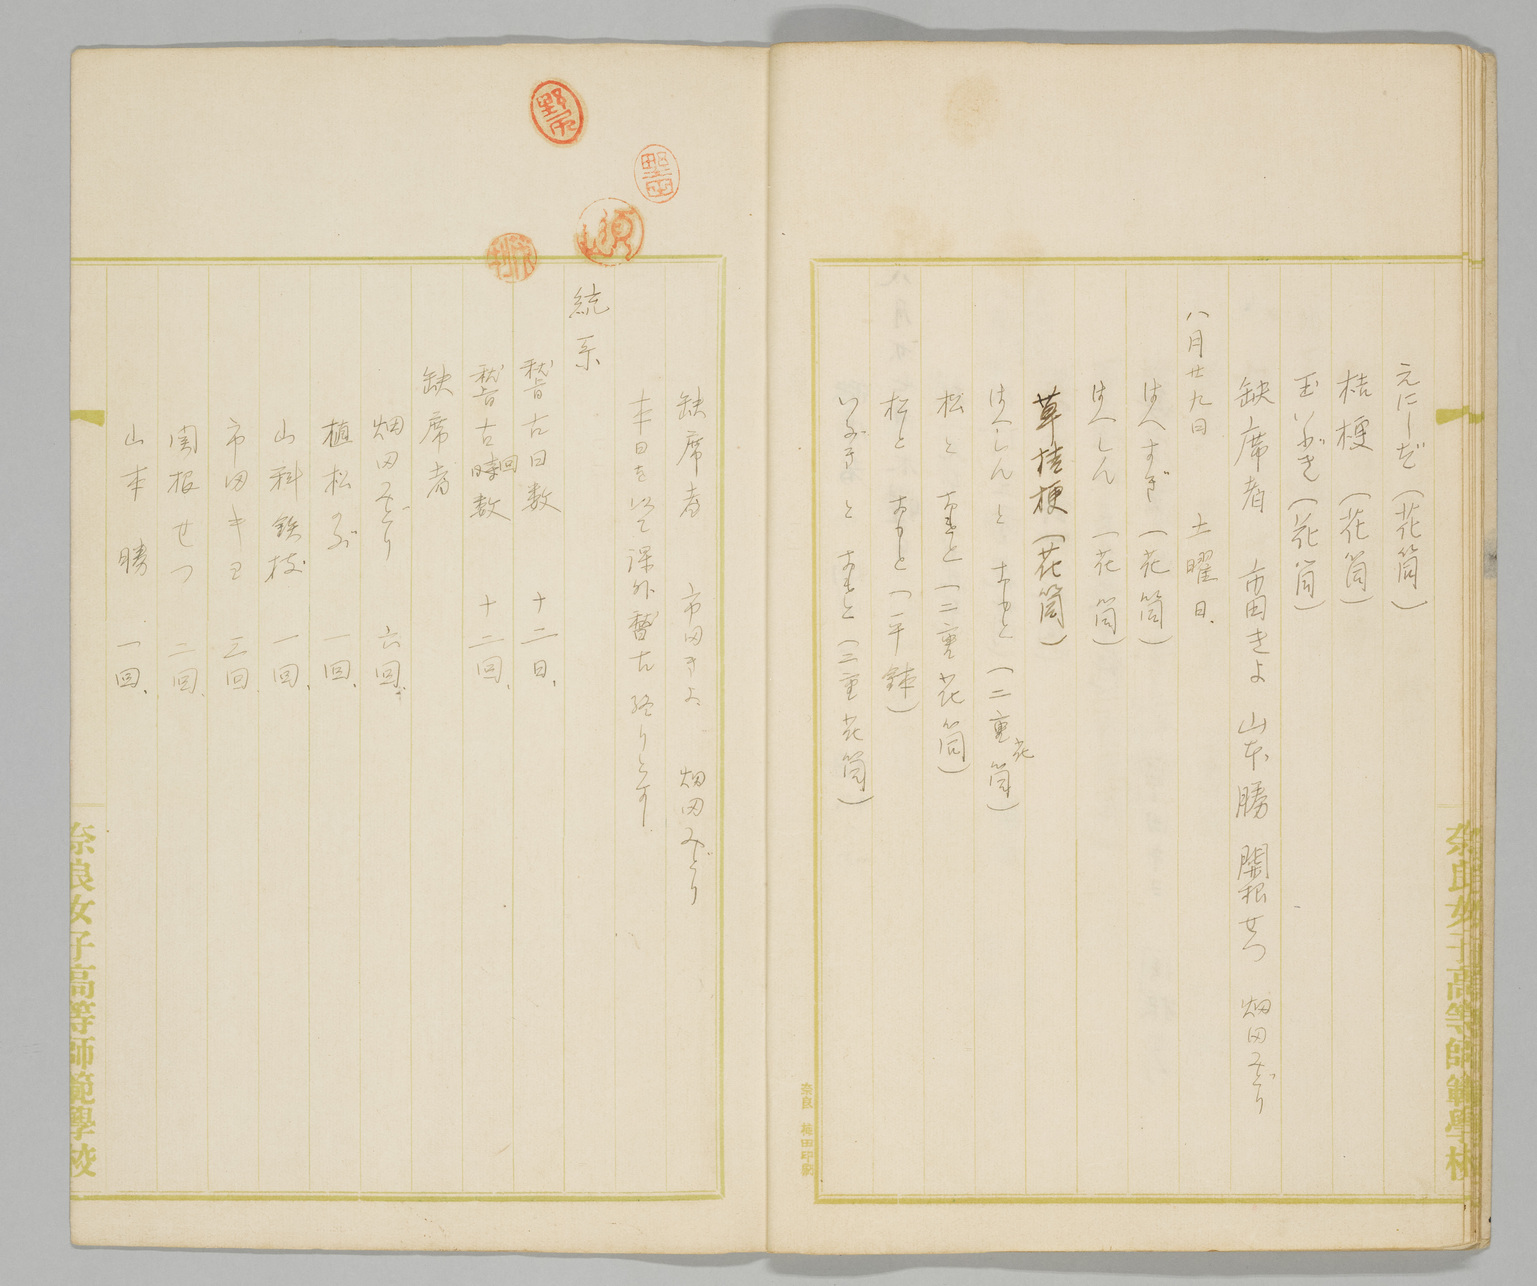 えにーだ(花筒)
桔梗(花筒)
玉いぶき(花筒)
缺席者 市田きよ 山本勝 関根せつ 畑田みどり
八月廿九日 土曜日.
はへすぎ(花筒)
はへしん(花筒)
草桔梗(花筒)
はへしんとおもと(二重花筒)
松とおもと(二重花筒)
松とおもと(平鉢)
いぶきとおもと(二重花筒)
奈良女子高等師範學校
缺席者 市田きよ 畑田みどり
本日を以て課外稽古終りとす
統系
稽古日数 十二日.
稽古回数 十二回.
缺席者
畑田みどり 六回.
植松のぶ 一回.
山科鉄枝 一回.
市田キヨ 三回
関根せつ 二回.
山本勝 一回.
奈良女子高等師範學校